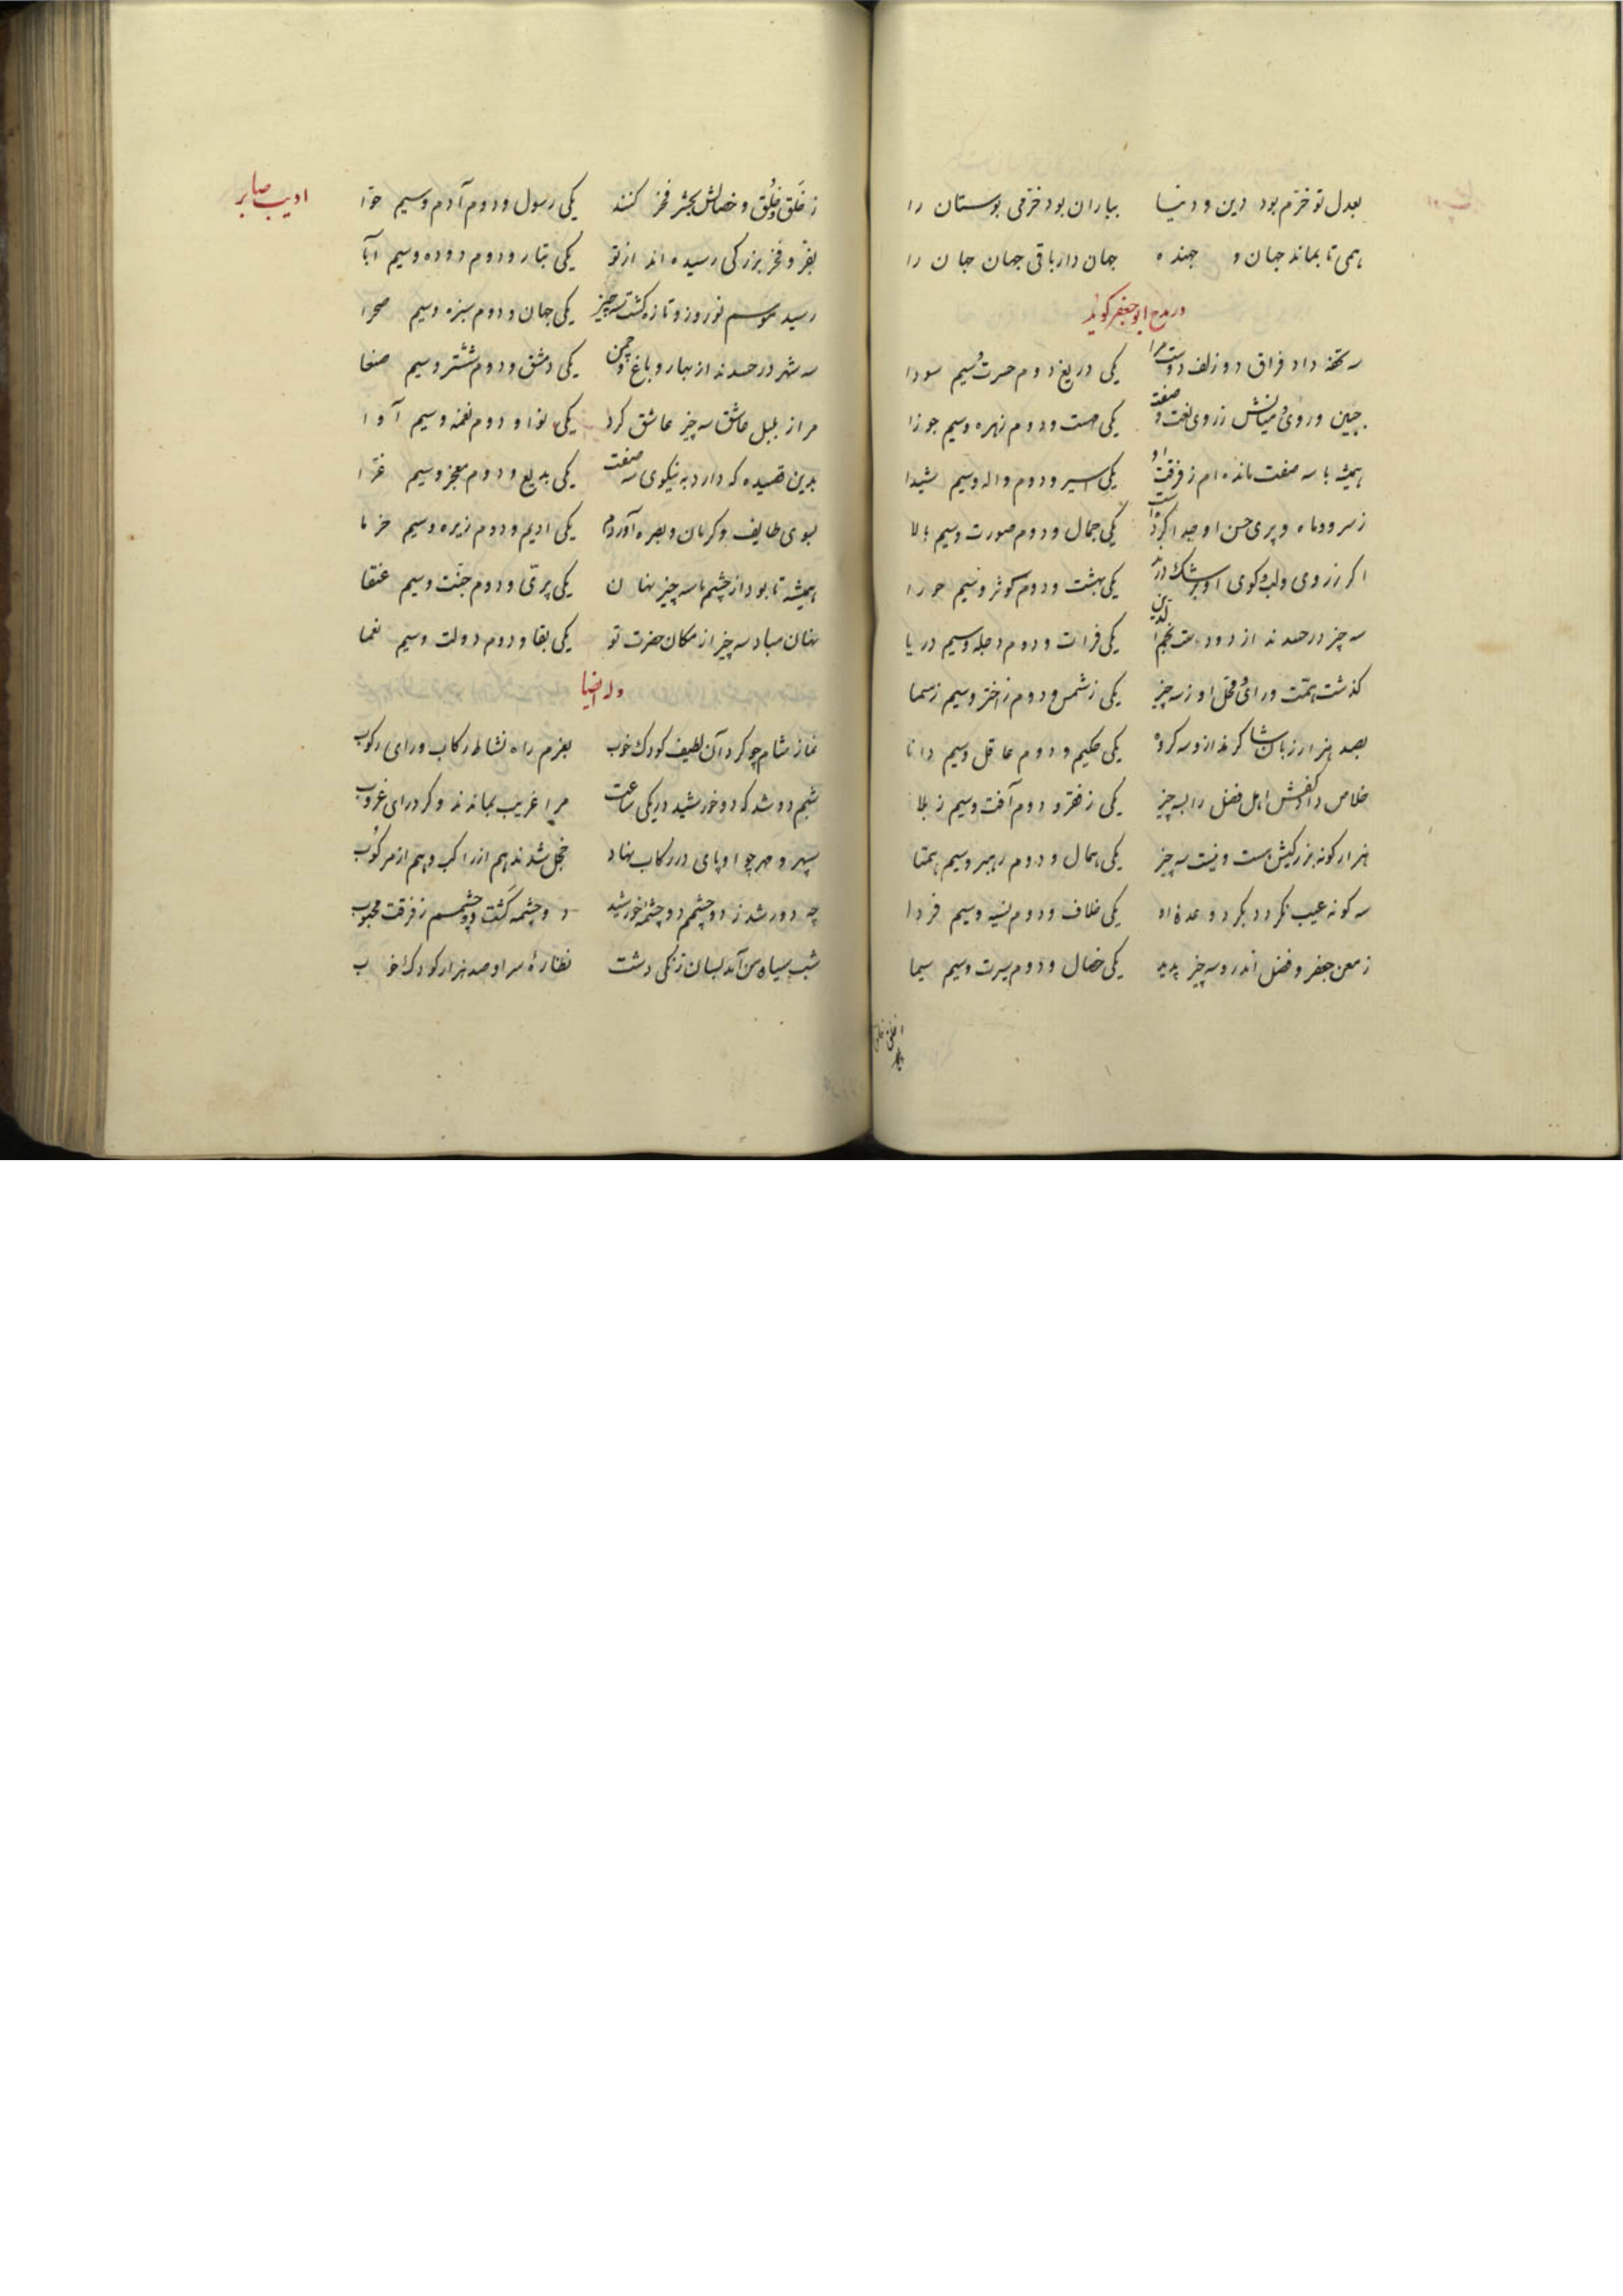 بعدل تو خرّم بود دین و دنیا بباران بود خرّمی بوستان را
همی تا بماند جهان و جهنده جهان دار باقی جهان جهان را
در مدح ابو جعفر کوید
سه تحفه داد فراق دو زلف دوست مرا یکی دریغ دوم حسرت و سیم سودا
جبین و روی و میانش ز روی نعت و صفت یکی مهست و دوم زهره و سیم جوزا
همیشه با سه صفت مانده‌ام ز فرقت او یکی اسیر و دوم واله و سیم شیدا
ز سرو و ماه و پری حسن او جدا کردست یکی جمال و دوم صورت و سیم بالا
اکر ز روی و لب و کوی او برشک درند یکی بهشت و دوم کوثر و سیم حورا
سه چیز در حسدند از دو دست نجم الدین یکی فرات و دوم دجله و سیم دریا
کذشت همّت و رای و محلّ او ز سه چیز یکی ز شمس و دوم ز اختر و سیم ز سما
بصد هزار زبان شاکرند ازو سه کروه یکی حکیم و دوم عاقل و سیم دانا
خلاص داد کفش اهل فضل را بسه چیز یکی ز فقر و دوم آفت و سیم ز بلا
هزار کونه بزرکیش هست و نیست سه چیز یکی همال و دوم رهبر و سیم همتا
سه کونه عیب نکردد بکرد وعدهٔ او یکی خلاف و دوم نسیه و سیم فردا
ز معن جعفر و فضل اندرو سه چیز پدید یکی خصال و دوم سیرت و سیم سیما
ادیب صابر
ز خَلق و خُلق و خصالش بحشر فخر کنند یکی رسول و دوم آدم و سیم حوّا
بفرّ و فخر بزرکی رسیده‌اند از تو یکی تبار و دوم دوده و سیم آبا
رسید موسم نوروز و تازه کشت سه چیز یکی جهان و دوم سبزه و سیم صحرا
سه شهر در حسدند از بهار و باغ و چمن یکی دمشق و دوم ششتر و سیم صنعا
مرا ز بلبل عاشق سه چیز عاشق کرد یکی نوا و دوم نغمه و سیم آوا
بدین قصیده که دارد به نیکوی سه صفت یکی بدیع و دوم معجز و سیم غرّا
بسوی طایف و کرمان و بصره آوردم یکی ادیم و دوم زیره و سیم خرما
همیشه تا بود از چشم ما سه چیز نهان یکی پری و دوم جنّت و سیم عنقا
نهان مباد سه چیز از مکان حضرت تو یکی بقا و دوم دولت و سیم نعما
وله ایضا
نماز شام چو کرد آن لطیف کودک خوب بعزم راه نشاط رکاب و رای رکوب
شبم دو شد که دو خورشید در یکی ساعت مرا غریب بماندند و کرد رای غروب
سپهر و مهر چو او پای در رکاب نهاد خجل شدند هم از راکب و هم از مرکوب
چه دور شد ز دو چشمم دو چشمهٔ خورشید دو چشمه کشت دو چشمم ز فرقت محبوب
شب سیاه من آمد بسان زنکی زشت نظارهٔ سر او صد هزار کودک خوب